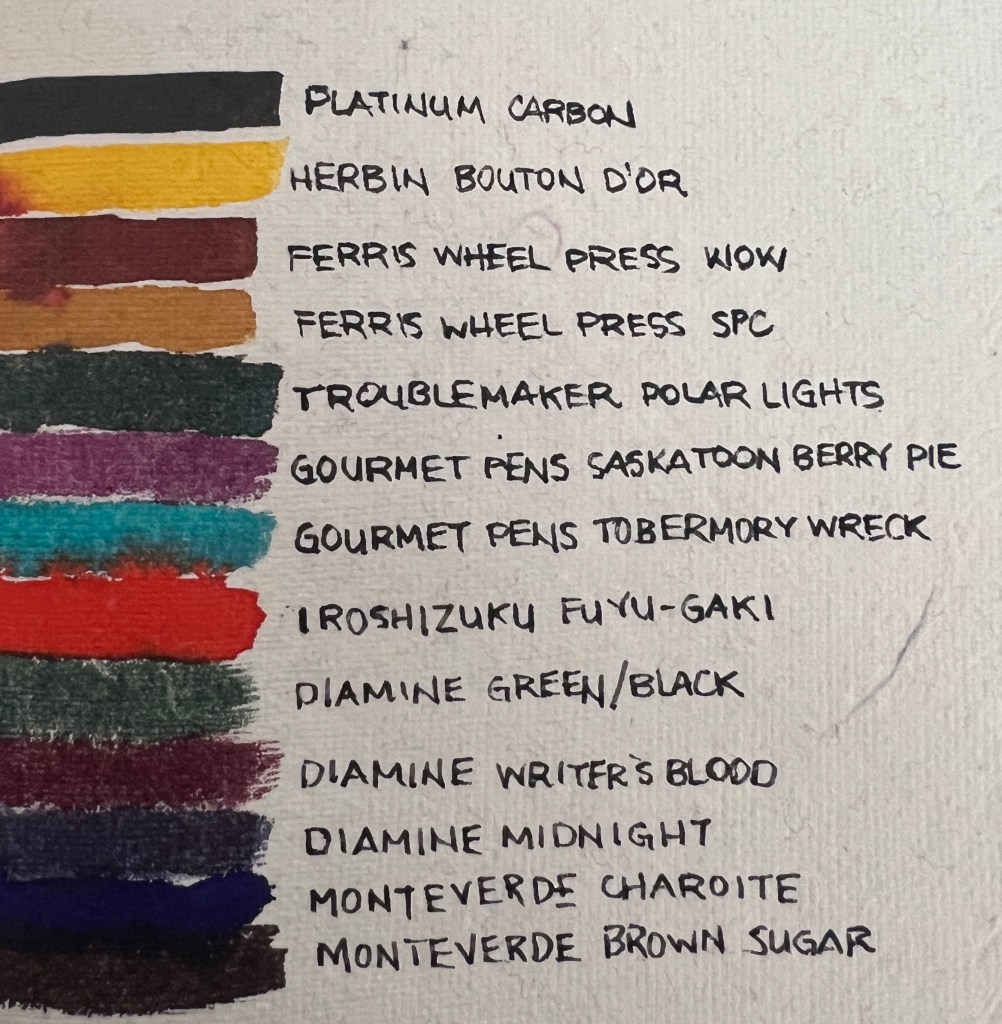 PLATINUM CARBON
HERBIN BOUTON D'OR
FERRIS WHEEL PRESS WOW
FERRIS WHEEL PRESS SPC
TROUBLEMAKER POLAR LIGHTS
GOURMET PENS SASKATOON BERRY PIE
GOURMET PENS TOBERMORY WRECK
IROSHIZUKU FUYU-GAKI
DIAMINE GREEN/BLACK
DIAMINE WRITER'S BLOOD
DIAMINE MIDNIGHT
MONTEVERDE CHAROITE
MONTEVERDE BROWN SUGAR